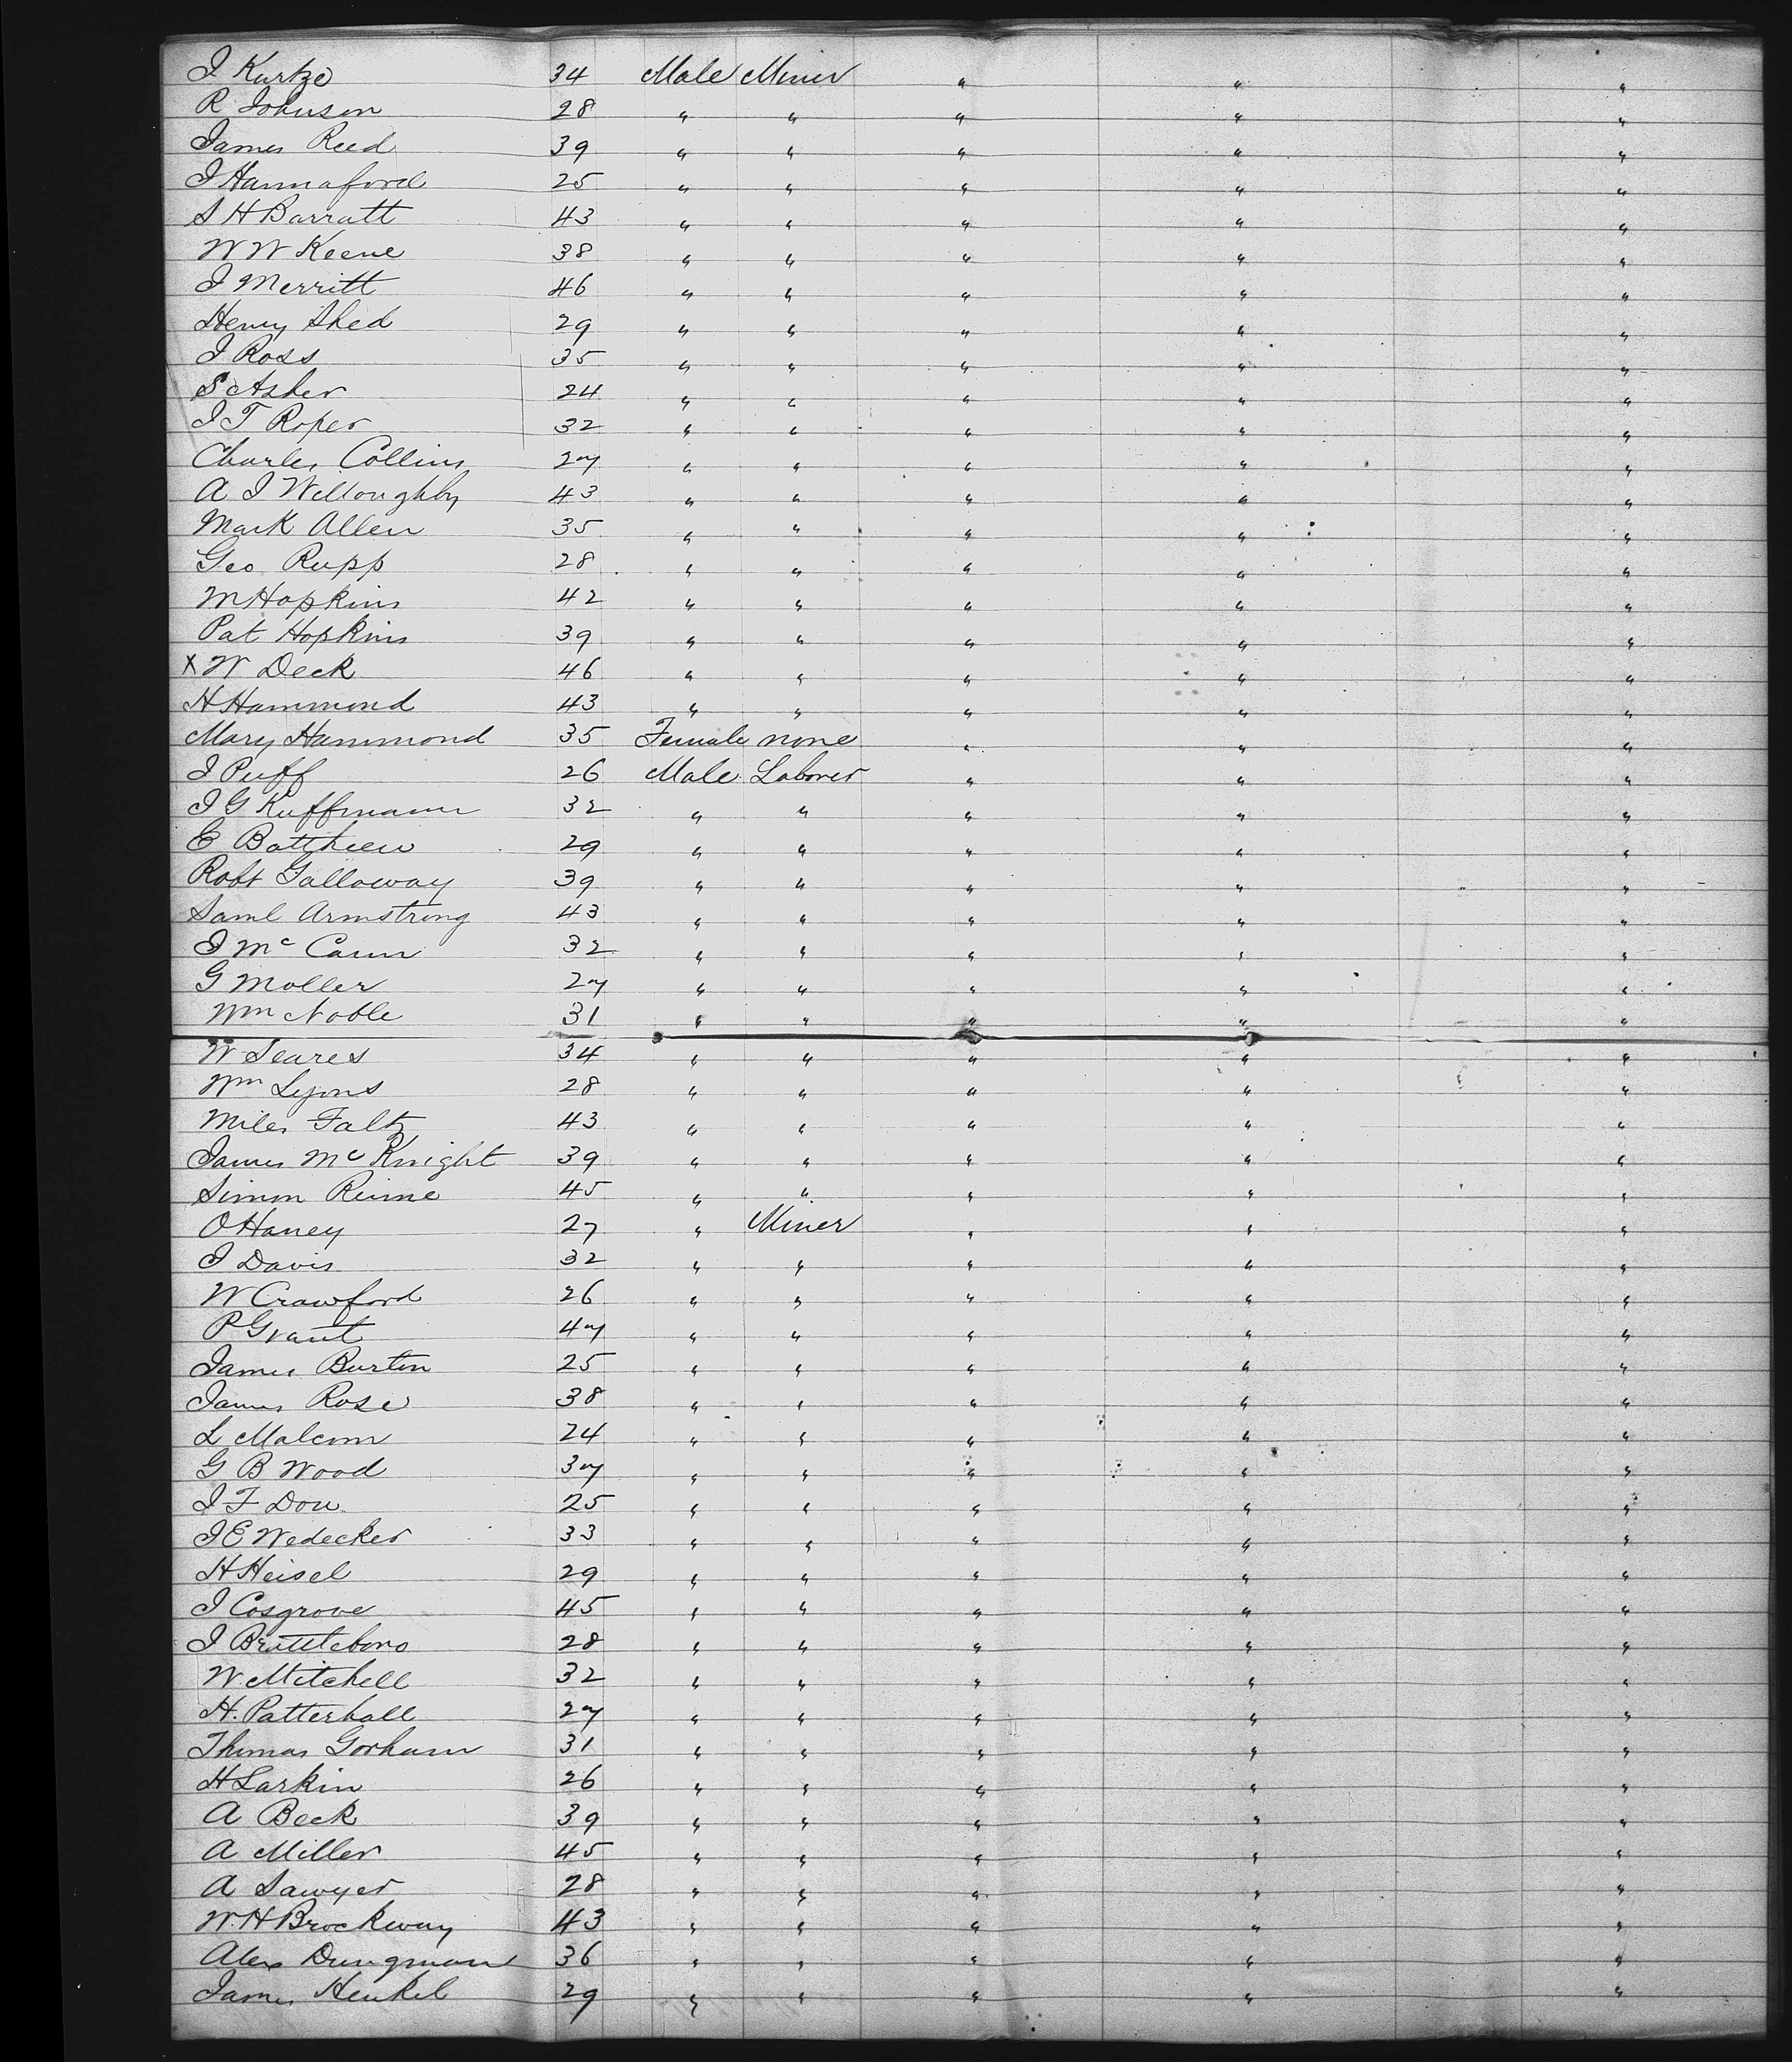 J Kurtze 34 Male Miner " " "
R Johnson 28 " " " " "
James Reed 39 " " " " "
J Hannaford 25 " " " " "
S H Barratt 43 " " " " "
W W Keene 38 " " " " "
J Merritt 46 " " " " "
Henry Shed 29 " " " " "
J Ross 35 " " " " "
S Asher 24 " " " " "
J T Roper 32 " " " " "
Charles Collins 27 " " " " "
A J Willoughby 43 " " " " "
Mark Allen 35 " " " " "
Geo Rupp 28 " " " " "
M Hopkins 42 " " " " "
Pat Hopkins 39 " " " " "
x W Deck 46 " " " " "
H Hammond 43 " " " " "
Mary Hammond 35 Female none " " "
J Puff 26 Male Laborer " " "
J G Kuffmann 32 " " " " "
E Batthieu 29 " " " " "
Robt Galloway 39 " " " " "
Saml Armstrong 43 " " " " "
J McCann 32 " " " " "
G Moller 27 " " " " "
Wm Noble 31 " " " " "
W Seares 34 " " " " "
Wm Lyons 28 " " " " "
Miles Faltz 43 " " " " "
James McKnight 39 " " " " "
Simon Reime 45 " " " " "
O Haney 27 " Miner " " "
J Davis 32 " " " " "
W Crawford 26 " " " " "
P Grant 47 " " " " "
James Burton 25 " " " " "
James Rose 38 " " " " "
L Malcom 24 " " " " "
G B Wood 37 " " " " "
J F Dow 25 " " " " "
J E Wedecker 33 " " " " "
H Heisel 29 " " " " "
J Cosgrove 45 " " " " "
J Brattleboro 28 " " " " "
W Mitchell 32 " " " " "
H. Patterhall 27 " " " " "
Thomas Gorham 31 " " " " "
H Larkin 26 " " " " "
A Beck 39 " " " " "
A Miller 45 " " " " "
A Sawyer 28 " " " " "
W. H Brockway 43 " " " " "
Alex Dungman 36 " " " " "
James Henkel 29 " " " " "